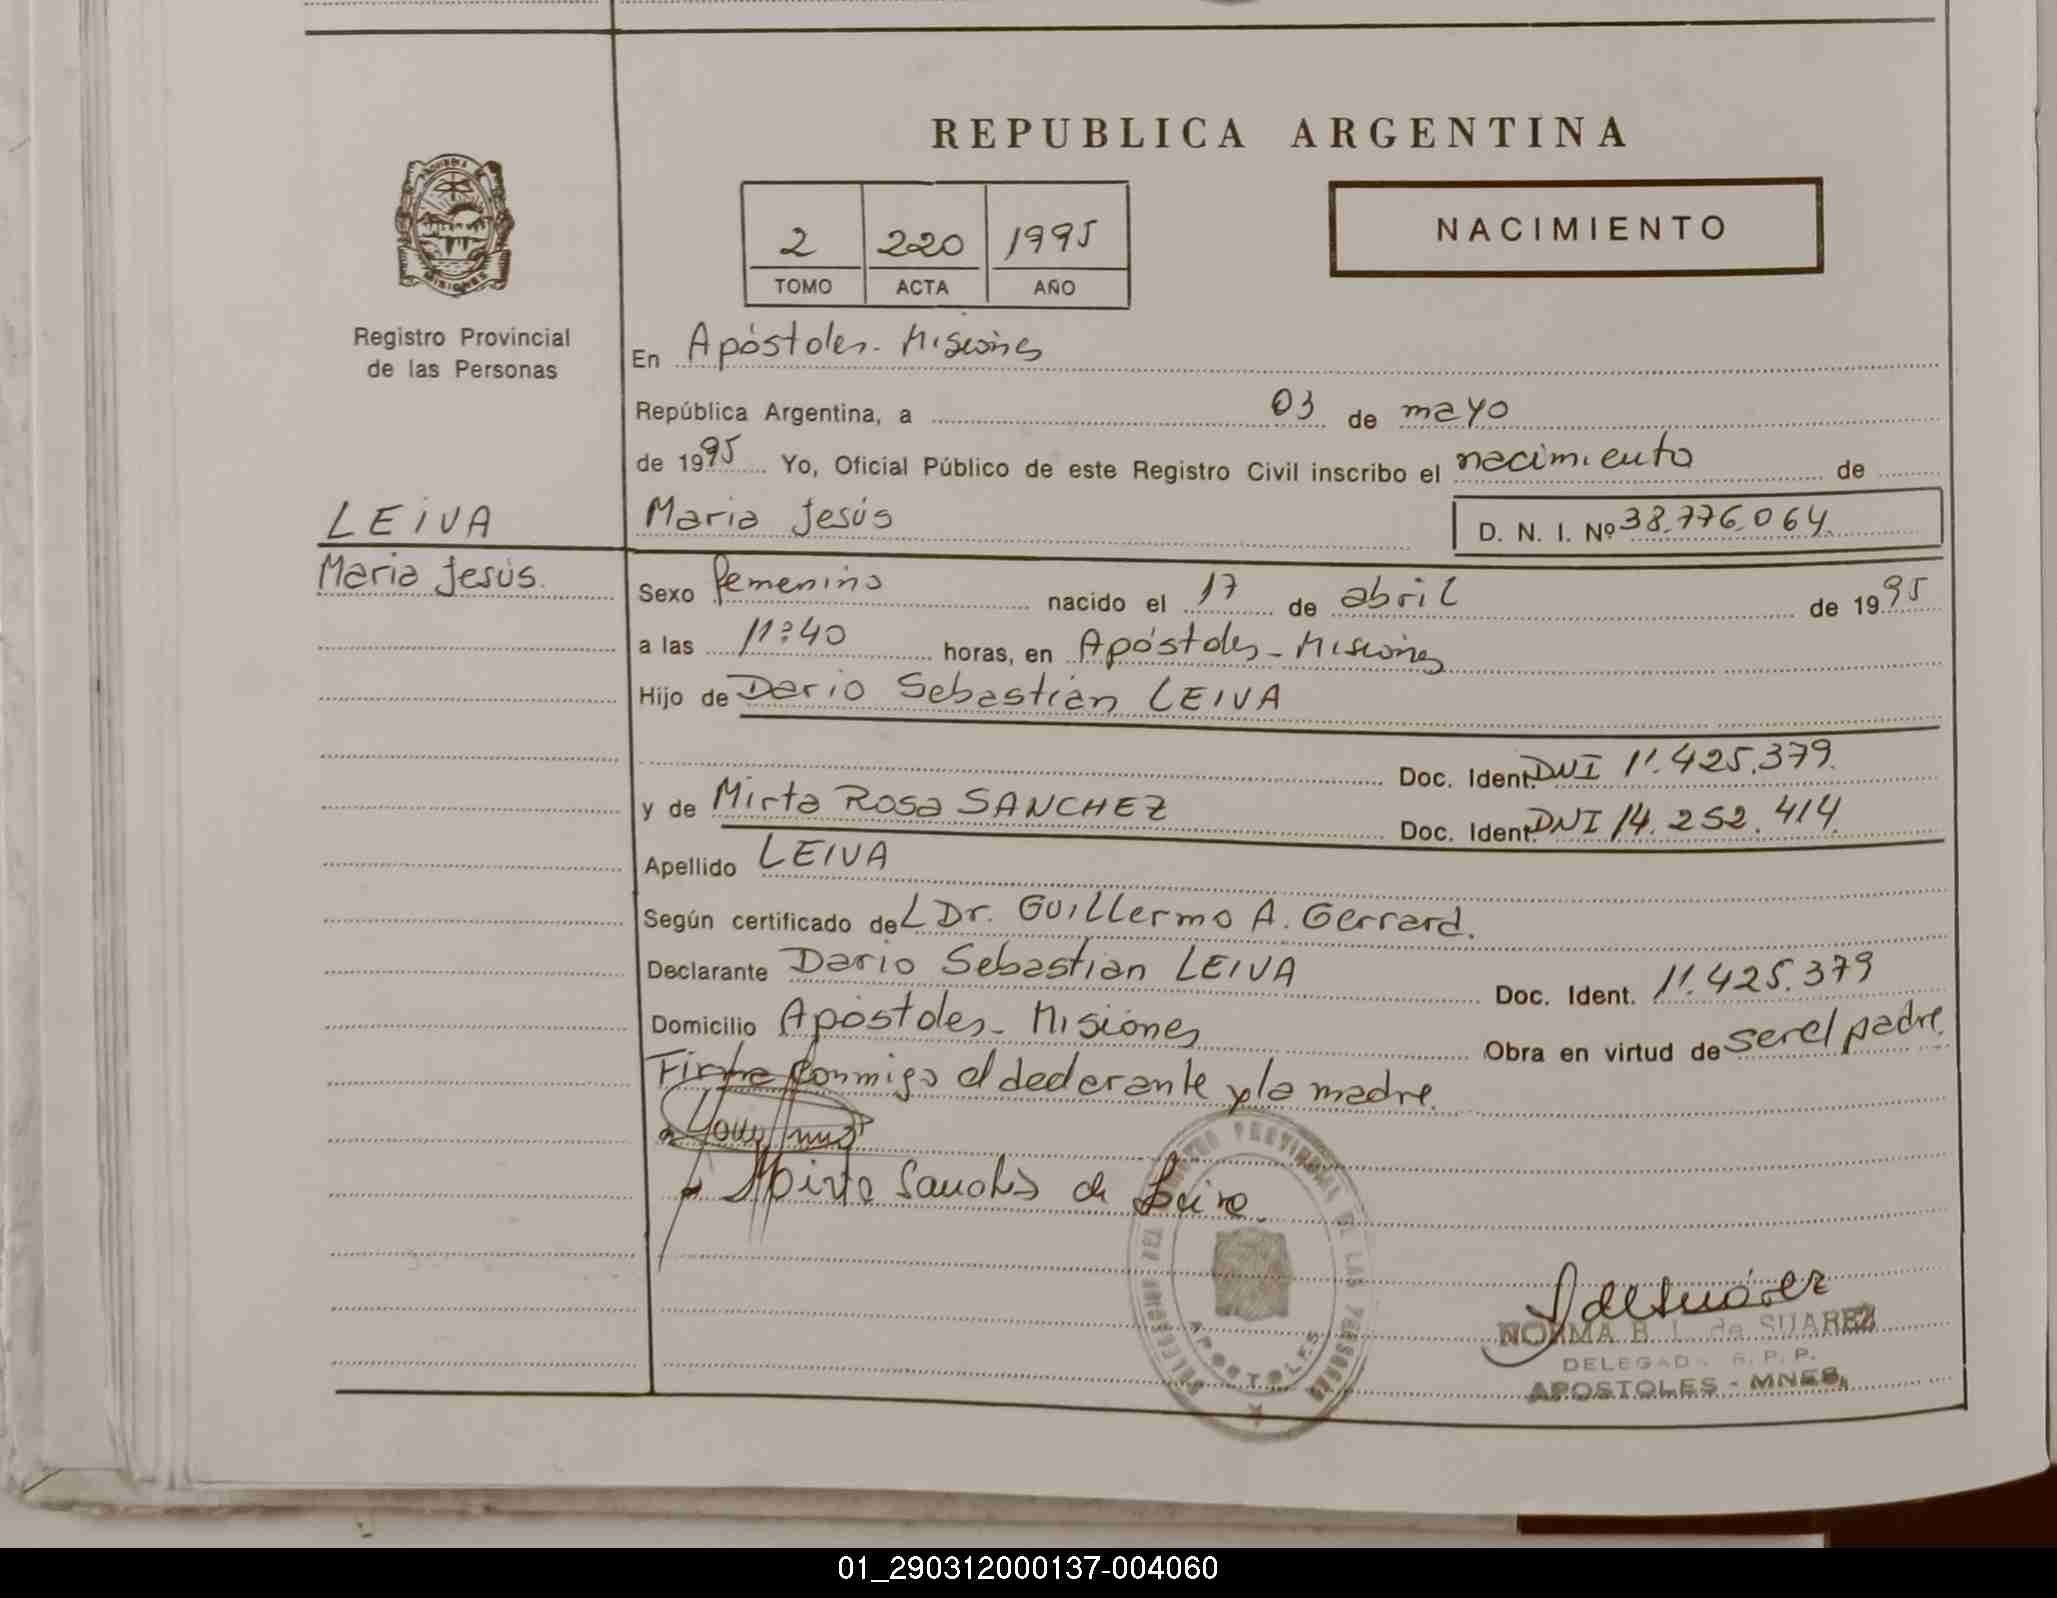 REPUBLICA ARGENTINA
NACIMIENTO
2 220 1995
TOMO ACTA AÑO
PROVINCIA DE
MISIONES
Registro Provincial
de las Personas
En Apóstoles - Misiones
República Argentina, a 03 de mayo
de 1995 Yo, Oficial Público de este Registro Civil inscribo el nacimiento de
LEIVA
Maria Jesús
Maria Jesús D. N. I. Nº 38.776.064
Sexo femenino nacido el 17 de abril de 1995
a las 11:40 horas, en Apóstoles - Misiones
Hijo de Dario Sebastián LEIVA
Doc. Ident. DNI 11.425.379
y de Mirta Rosa SANCHEZ Doc. Ident. DNI 14.252.414
Apellido LEIVA
Según certificado del Dr. Guillermo A. Gerrard.
Declarante Dario Sebastian LEIVA Doc. Ident. 11.425.379
Domicilio Apóstoles - Misiones Obra en virtud de ser el padre.
Firma conmigo el declarante y la madre.
Mirta Sanches de Leiva
REGISTRO PROVINCIAL DE LAS PERSONAS
APOSTOLES
NORMA B. L. de SUAREZ
DELEGADA R. P. P.
APOSTOLES - MNES.
01_290312000137-004060